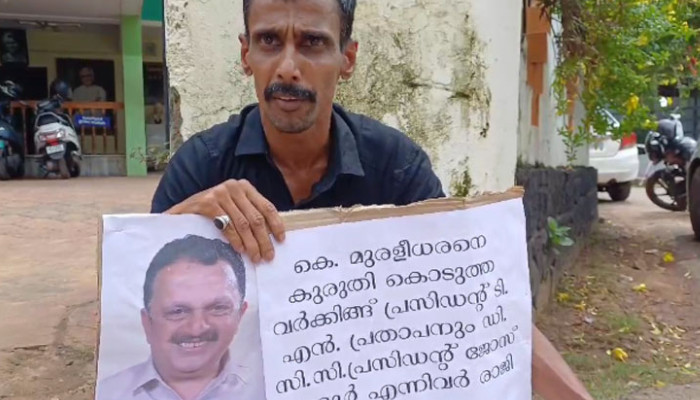 കെ. മുരളീധരനെ
കുരുതി കൊടുത്ത
വർക്കിങ്ങ് പ്രസിഡന്റ് ടി.
എൻ. പ്രതാപനും ഡി.
സി.സി.പ്രസിഡന്റ് ജോസ്
എന്നിവർ രാജി